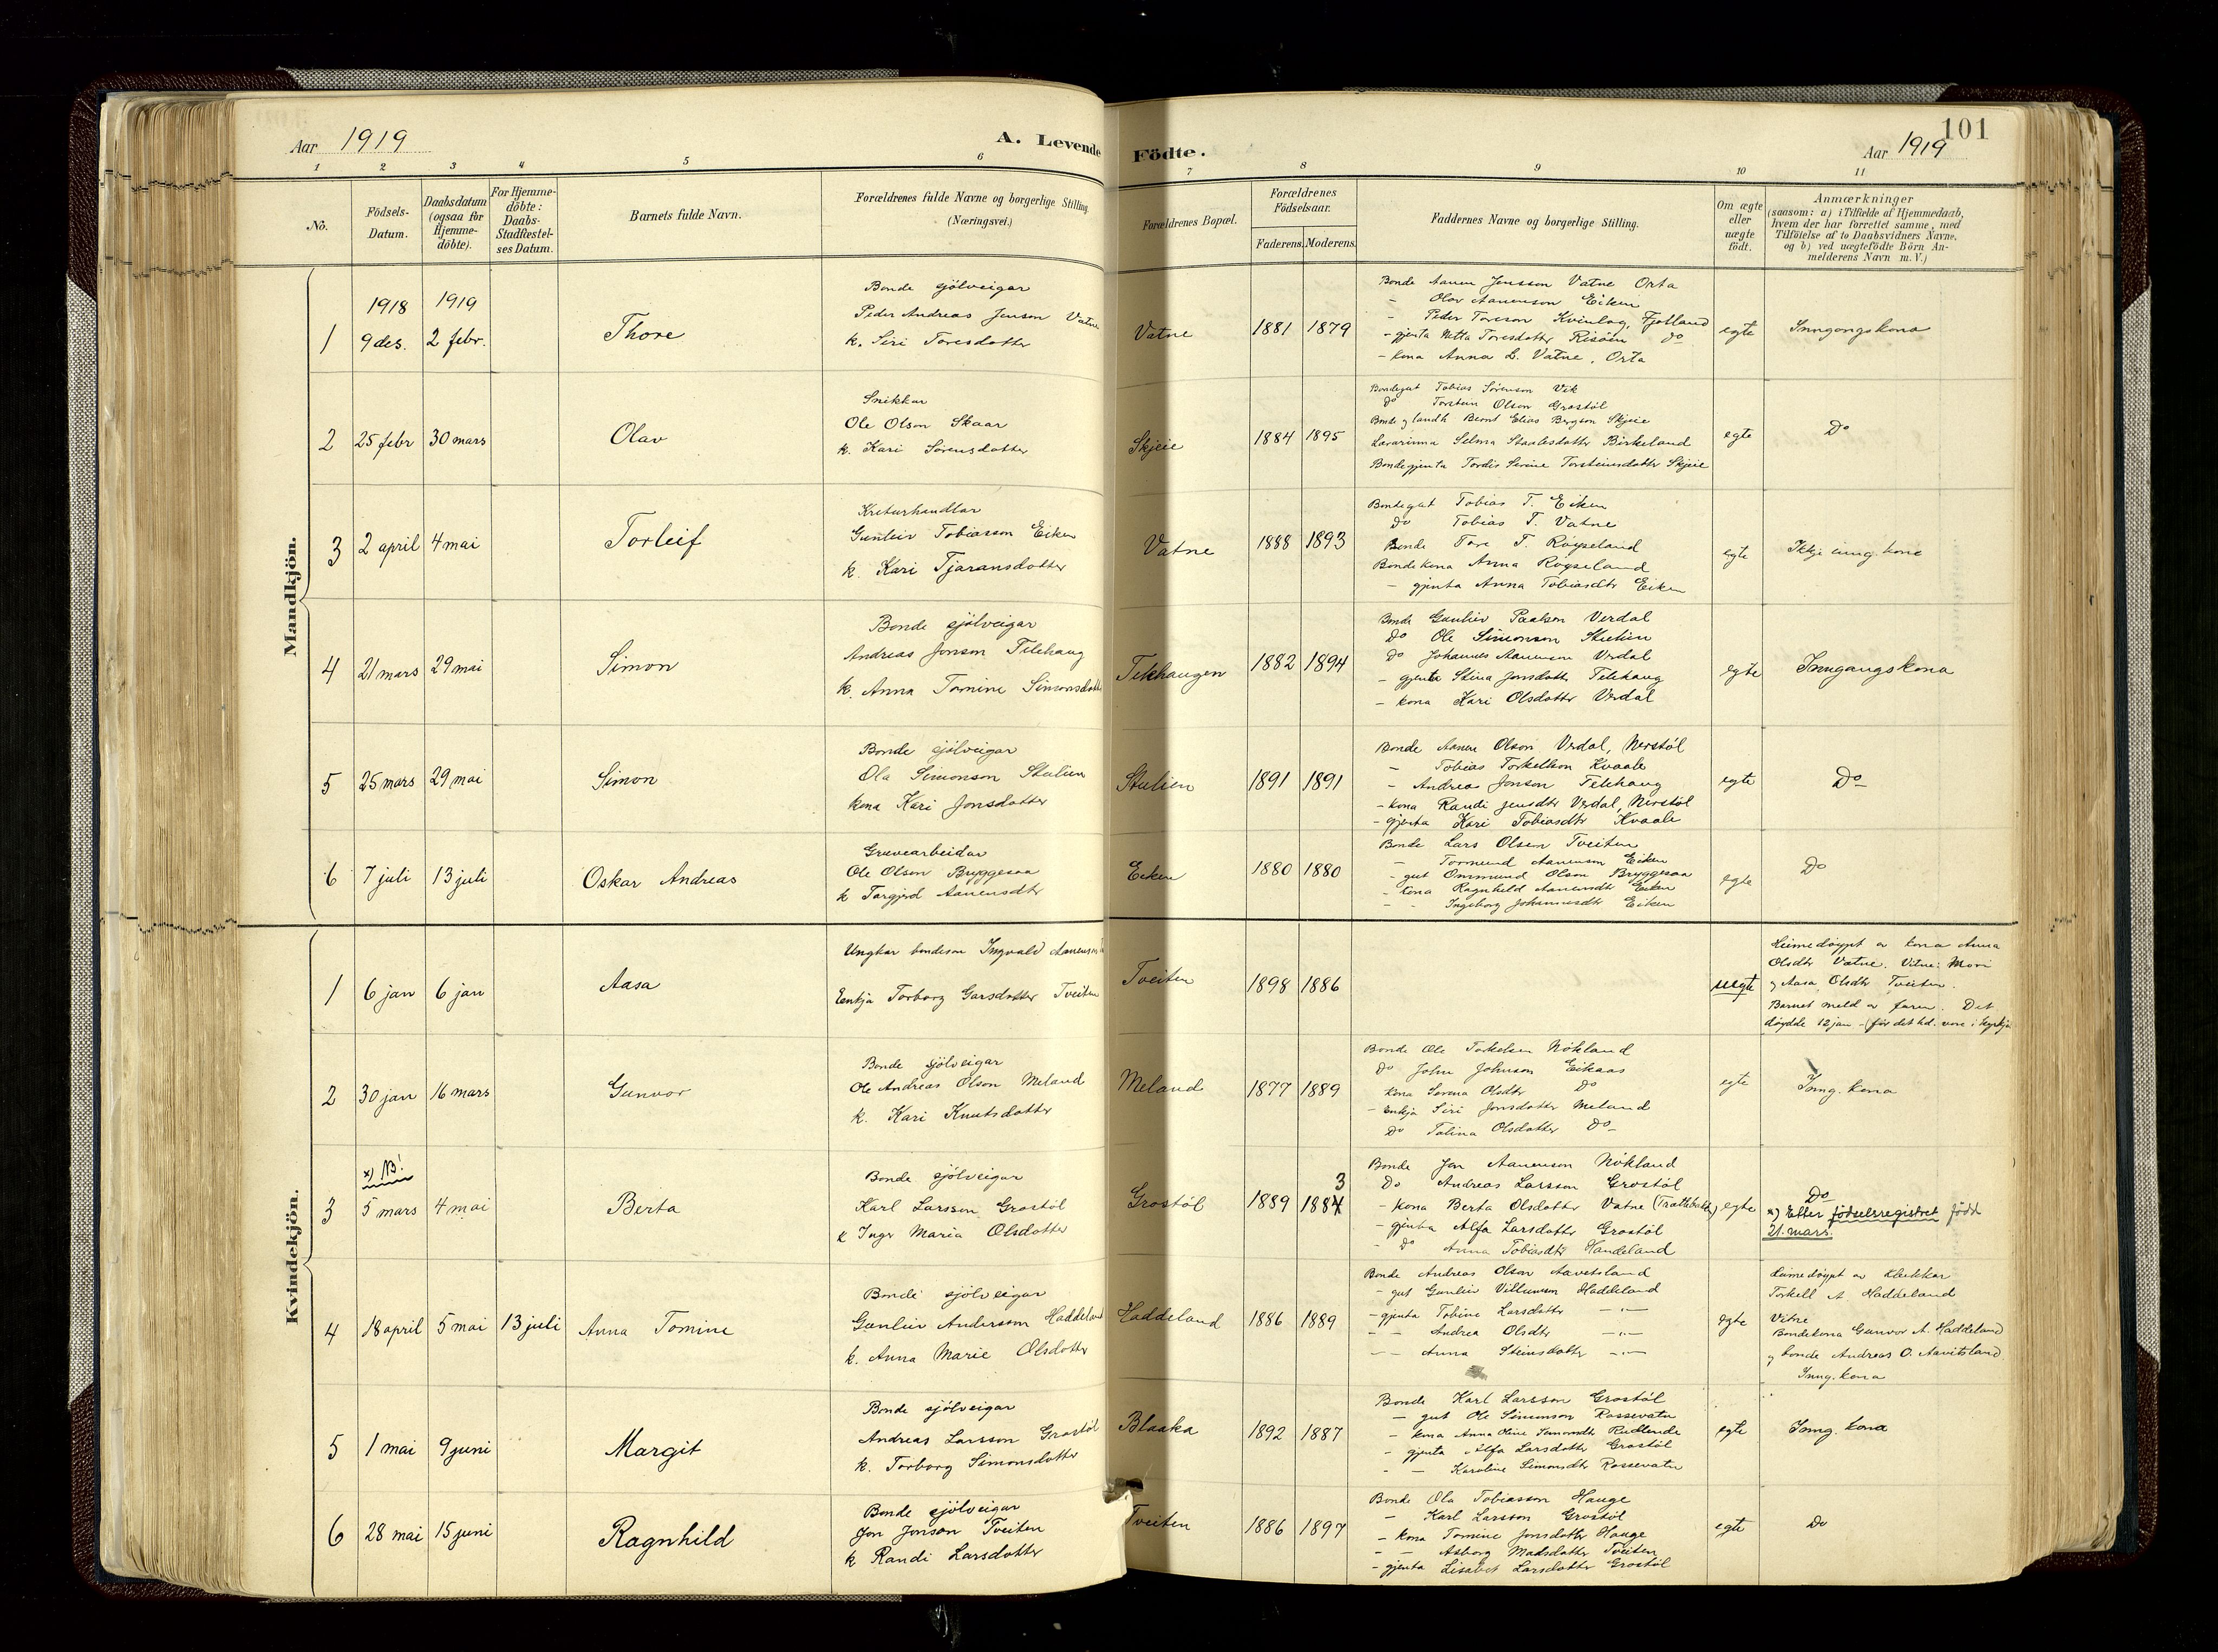 101
Aar 1919
A. Levende Födte.
Aar 1919
1 2 3 4 5 6 7 8 9 10 11
No.
Födsels-Datum.
Daabsdatum (ogsaa for Hjemme-döbte).
For Hjemme-döbte: Daabs-Stadfæstel-ses Datum.
Barnets fulde Navn.
Forældrenes fulde Navne og borgerlige Stilling (Næringsvei.)
Forældrenes Bopæl.
Forældrenes Födselsaar.
Faderens. Moderens.
Faddernes Navne og borgerlige Stilling.
Om ægte eller uægte födt.
Anmærkninger
(saasom: a) i Tilfælde af Hjemmedaab, hvem der har forrettet samme, med Tilföielse af to Daabsvidners Navne, og b) ved uægtefödte Börn An-melderens Navn m. V.)
Mandkjön.
1
1918
9 des.
1919
2 febr.
Thore
Bonde sjölveigar
Peder Andreas Jenson Vatne
k. Siri Toresdotter
Vatne
1881 1879
Bonde Aanen Jensson Vatne Orta
- Olav Aanenson Eiken
- Peder Toreson Kvinlog, Fjotland
- gjenta Netta Toresdotter Risöin do
- kona Anna L. Vatne, Orta
egte
Inngongskona
2
25 febr
30 mars
Olav
Snikkar
Ole Olson Skaar
k. Kari Sörensdotter
Skjeie
1884 1895
Bondegut Tobias Sörenson Vik
do Torstein Olson Grostöl
Bonde og landh Bernt Elias Bergson Skjeie
Lærarinna Selma Staalesdotter Birkeland
Bondegjenta Tordis Serine Torsteinsdotter Skjeie
egte
Do
3
2 april
4 mai
Torleif
Kreturhandlar
Gunleiv Tobiasson Eiken
k. Kari Tjaransdotter
Vatne
1888 1893
Bondegut Tobias T. Eiken
do Tobias T. Vatne
Bonde Tore T. Röyseland
Bondekona Anna Röyseland
- gjenta Anna Tobiasdtr Eiken
egte
Ikkje inng. kona
4
21 mars
29 mai
Simon
Bonde sjölveigar
Andreas Jonson Telehaug
k. Anna Tomine Simonsdotter
Tekhaugen
1882 1894
Bonde Gunleiv Paalson Verdal
Do Ole Simonson Stulien
Do Johannes Aanenson Verdal
- gjenta Stina Jonsdotter Telehaug
- kona Kari Olsdotter Verdal
egte
Inngangskona
5
25 mars
29 mai
Simon
Bonde sjölveigar
Ola Simonson Stulien
kona Kari Jonsdotter
Stulien
1891 1891
Bonde Aanen Olson Verdal, Nerstöl
- Tobias Torkellson Kvaale
- Andreas Jonson Telehaug
- kona Randi Jensdtr Verdal, Nerstöl
- gjenta Kari Tobiasdtr Kvaale
egte
Do
6
7 juli
13 juli
Oskar Andreas
Gruvearbeidar
Ole Olson Bryggesaa
k Torgjerd Aanensdtr
Eiken
1880 1880
Bonde Lars Olsen Tveiten
- Tormund Aanenson Eiken
- gut Ommund Olson Bryggesaa
- kona Ragnhild Aanensdtr Eiken
- - Ingeborg Johannesdtr Eiken
egte
Do
Kvindekjön.
1
6 jan
6 jan
Aasa
Ungkar bondeson Ingvald Aanenson
Enkja Torborg Garsdotter Tveiten
Tveiten
1898 1886
uegte
Heimedöypt av kona Anna
Olsdtr Vatne. Vitne: Mori
og Aasa Olsdtr Tveiten.
Barnet meld av faren. Det
döydde 12 jan - (för det hd. vore i kyrkja
2
30 jan
16 mars
Gunvor
Bonde sjölveigar
Ole Andreas Olson Meland
k. Kari Knutsdotter
Meland
1877 1889
Bonde Ole Torkelsen Nökland
Do John Johnson Eikaas
kona Serena Olsdtr Do
- Enkja Siri Jonsdotter Meland
Do Tolina Olsdotter Do
egte
Inng. kona
3
x) NB!
5 mars
4 mai
Berta
Bonde sjölveigar
Karl Larsson Grostöl
k Inger Maria Olsdotter
Grostöl
1889 1884 3
Bonde Jon Aanenson Nökland
Do Andreas Larsson Grostöl
- kona Berta Olsdotter Vatne
- gjenta Alfa Larsdotter Grostöl
- Do Anna Tobiasdtr Handeland
egte
Do
x) Etter födselsregistret född
21. mars.
4
18 april
5 mai
13 juli
Anna Tomine
Bonde sjölveigar
Gunleiv Anderson Haddeland
k. Anna Marie Olsdotter
Haddeland
1886 1889
Bonde Andreas Olson Aavitsland
- gut Gunleiv Villumson Haddeland
- gjenta Tobine Larsdotter -"-
- - Andrea Olsdtr -"-
- - Anna Steinsdotter -"-
egte
Heimedöypt av klokkar
Torkell A Haddeland
Vitne
Bondekona Gunvor A. Haddeland
og bonde Andreas O. Aavitsland
Inng. kona
5
1 mai
9 juni
Margit
Bonde sjölveigar
Andreas Larsson Grostöl
k. Torborg Simonsdotter
Blaaka
1892 1887
Bonde Karl Larsson Grostöl
- gut Ole Simonson Rossevatn
- kona Anna Oline Simonsdtr Rudlende
- gjenta Alfa Larsdotter Grostöl
- - Karoline Simonsdtr Rossevatn
egte
Inng. kona
6
28 mai
15 juni
Ragnhild
Bonde sjölveigar
Jon Jonson Tveiten
k Randi Larsdotter
Tveiten
1886 1897
Bonde Ola Tobiasson Hauge
- Karl Larsson Grostöl
- kona Tomine Jonsdotter Hauge
- - Asborg Madsdotter Tveiten
- gjenta Lisabet Larsdotter Grostöl
egte
Do